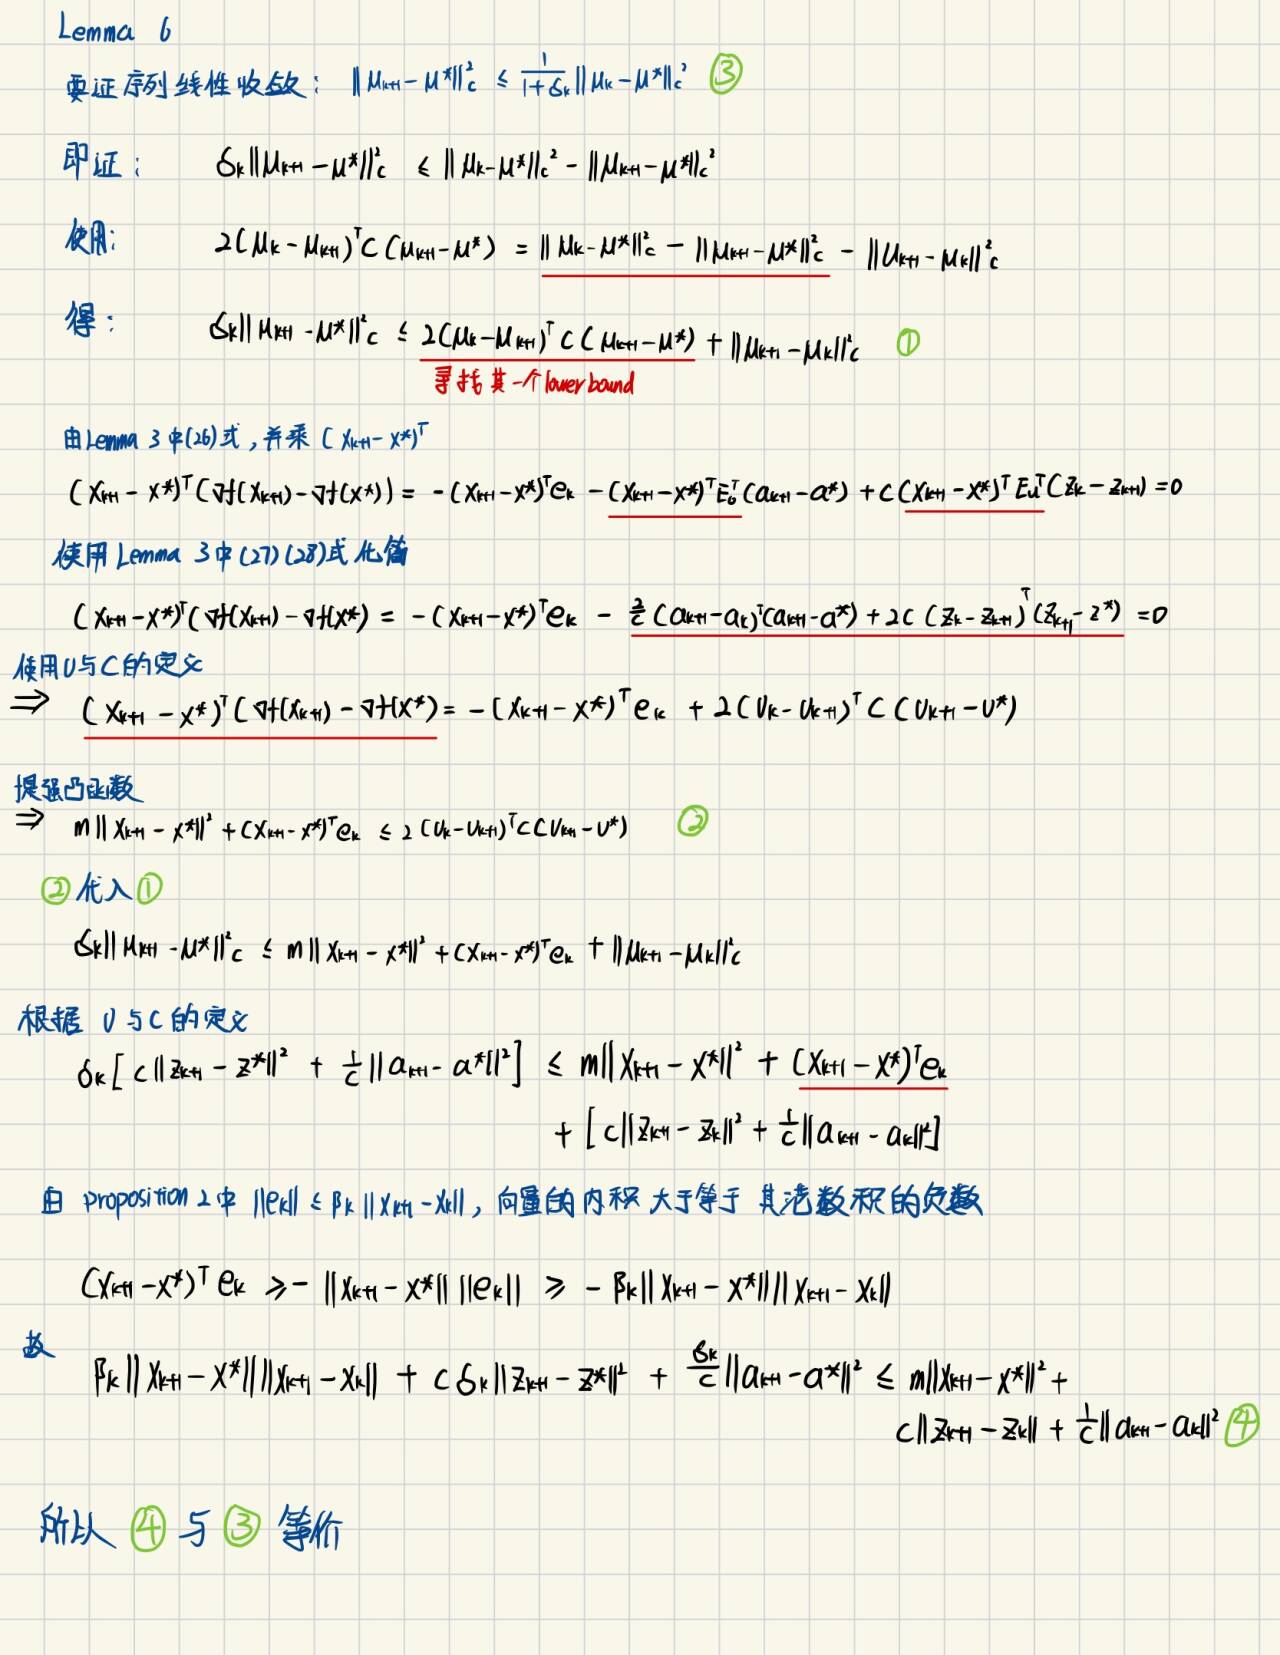 Lemma 6
要证序列线性收敛: ‖μₖ₊₁ - μ*‖²_c ≤ 1/(1+δₖ) ‖μₖ - μ*‖_c² ③
即证: δₖ‖μₖ₊₁ - μ*‖²_c ≤ ‖μₖ - μ*‖_c² - ‖μₖ₊₁ - μ*‖_c²
使用: 2(μₖ - μₖ₊₁)ᵀC(μₖ₊₁ - μ*) = ‖μₖ - μ*‖²_c - ‖μₖ₊₁ - μ*‖²_c - ‖μₖ₊₁ - μₖ‖²_c
得: δₖ‖μₖ₊₁ - μ*‖²_c ≤ 2(μₖ - μₖ₊₁)ᵀC(μₖ₊₁ - μ*) + ‖μₖ₊₁ - μₖ‖²_c ①
寻找其一个lower bound
由Lemma 3中(26)式,并乘 (xₖ₊₁ - x*)ᵀ
(xₖ₊₁ - x*)ᵀ(∇f(xₖ₊₁) - ∇f(x*)) = -(xₖ₊₁ - x*)ᵀeₖ - (xₖ₊₁ - x*)ᵀE₀ᵀ(aₖ₊₁ - a*) + c(xₖ₊₁ - x*)ᵀEᵤᵀ(zₖ - zₖ₊₁) = 0
使用Lemma 3中(27)(28)式化简
(xₖ₊₁ - x*)ᵀ(∇f(xₖ₊₁) - ∇f(x*) = -(xₖ₊₁ - x*)ᵀeₖ - 2/c (aₖ₊₁ - aₖ)ᵀ(aₖ₊₁ - a*) + 2c (zₖ - zₖ₊₁)ᵀ(zₖ₊₁ - z*) = 0
使用U与C的定义
⇒ (xₖ₊₁ - x*)ᵀ(∇f(xₖ₊₁) - ∇f(x*) = -(xₖ₊₁ - x*)ᵀeₖ + 2(Uₖ - Uₖ₊₁)ᵀC(Uₖ₊₁ - U*)
强凸函数
⇒ m‖xₖ₊₁ - x*‖² + (xₖ₊₁ - x*)ᵀeₖ ≤ 2(Uₖ - Uₖ₊₁)ᵀC(Uₖ₊₁ - U*) ②
②代入①
δₖ‖μₖ₊₁ - μ*‖²_c ≤ m‖xₖ₊₁ - x*‖² + (xₖ₊₁ - x*)ᵀeₖ + ‖μₖ₊₁ - μₖ‖²_c
根据 U与C的定义
δₖ[c‖zₖ₊₁ - z*‖² + 1/c ‖aₖ₊₁ - a*‖²] ≤ m‖xₖ₊₁ - x*‖² + (xₖ₊₁ - x*)ᵀeₖ
+ [c‖zₖ₊₁ - zₖ‖² + 1/c ‖aₖ₊₁ - aₖ‖²]
由 proposition 2中 ‖eₖ‖ ≤ βₖ‖xₖ₊₁ - xₖ‖, 向量的内积大于等于其范数积的负数
(xₖ₊₁ - x*)ᵀeₖ ≥ -‖xₖ₊₁ - x*‖‖eₖ‖ ≥ -βₖ‖xₖ₊₁ - x*‖‖xₖ₊₁ - xₖ‖
故 βₖ‖xₖ₊₁ - x*‖‖xₖ₊₁ - xₖ‖ + cδₖ‖zₖ₊₁ - z*‖² + δₖ/c ‖aₖ₊₁ - a*‖² ≤ m‖xₖ₊₁ - x*‖² +
c‖zₖ₊₁ - zₖ‖ + 1/c ‖aₖ₊₁ - aₖ‖² ④
所以 ④与③等价